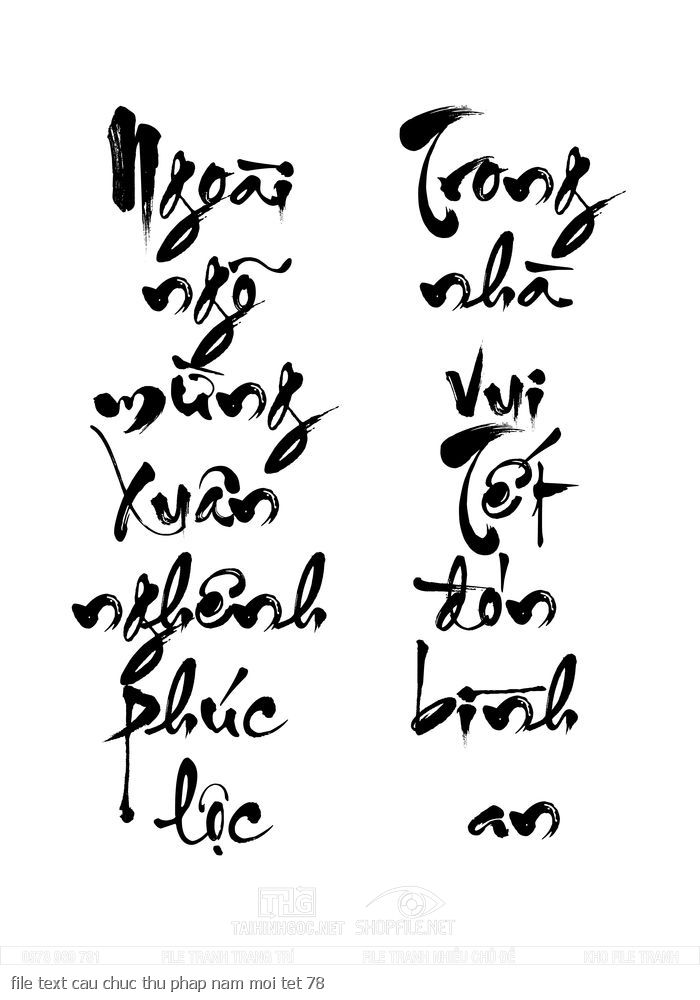 Ngoài
ngõ
mừng
Xuân
nghênh
phúc
lộc
Trong
nhà
vui
Tết
đón
bình
an
THG
TAIHINHGOC.NET
SHOPFILE.NET
FILE TRANH TRANG TRÍ
FILE TRANH NHIỀU CHỦ ĐỀ
KHO FILE TRANH
file text cau chuc thu phap nam moi tet 78